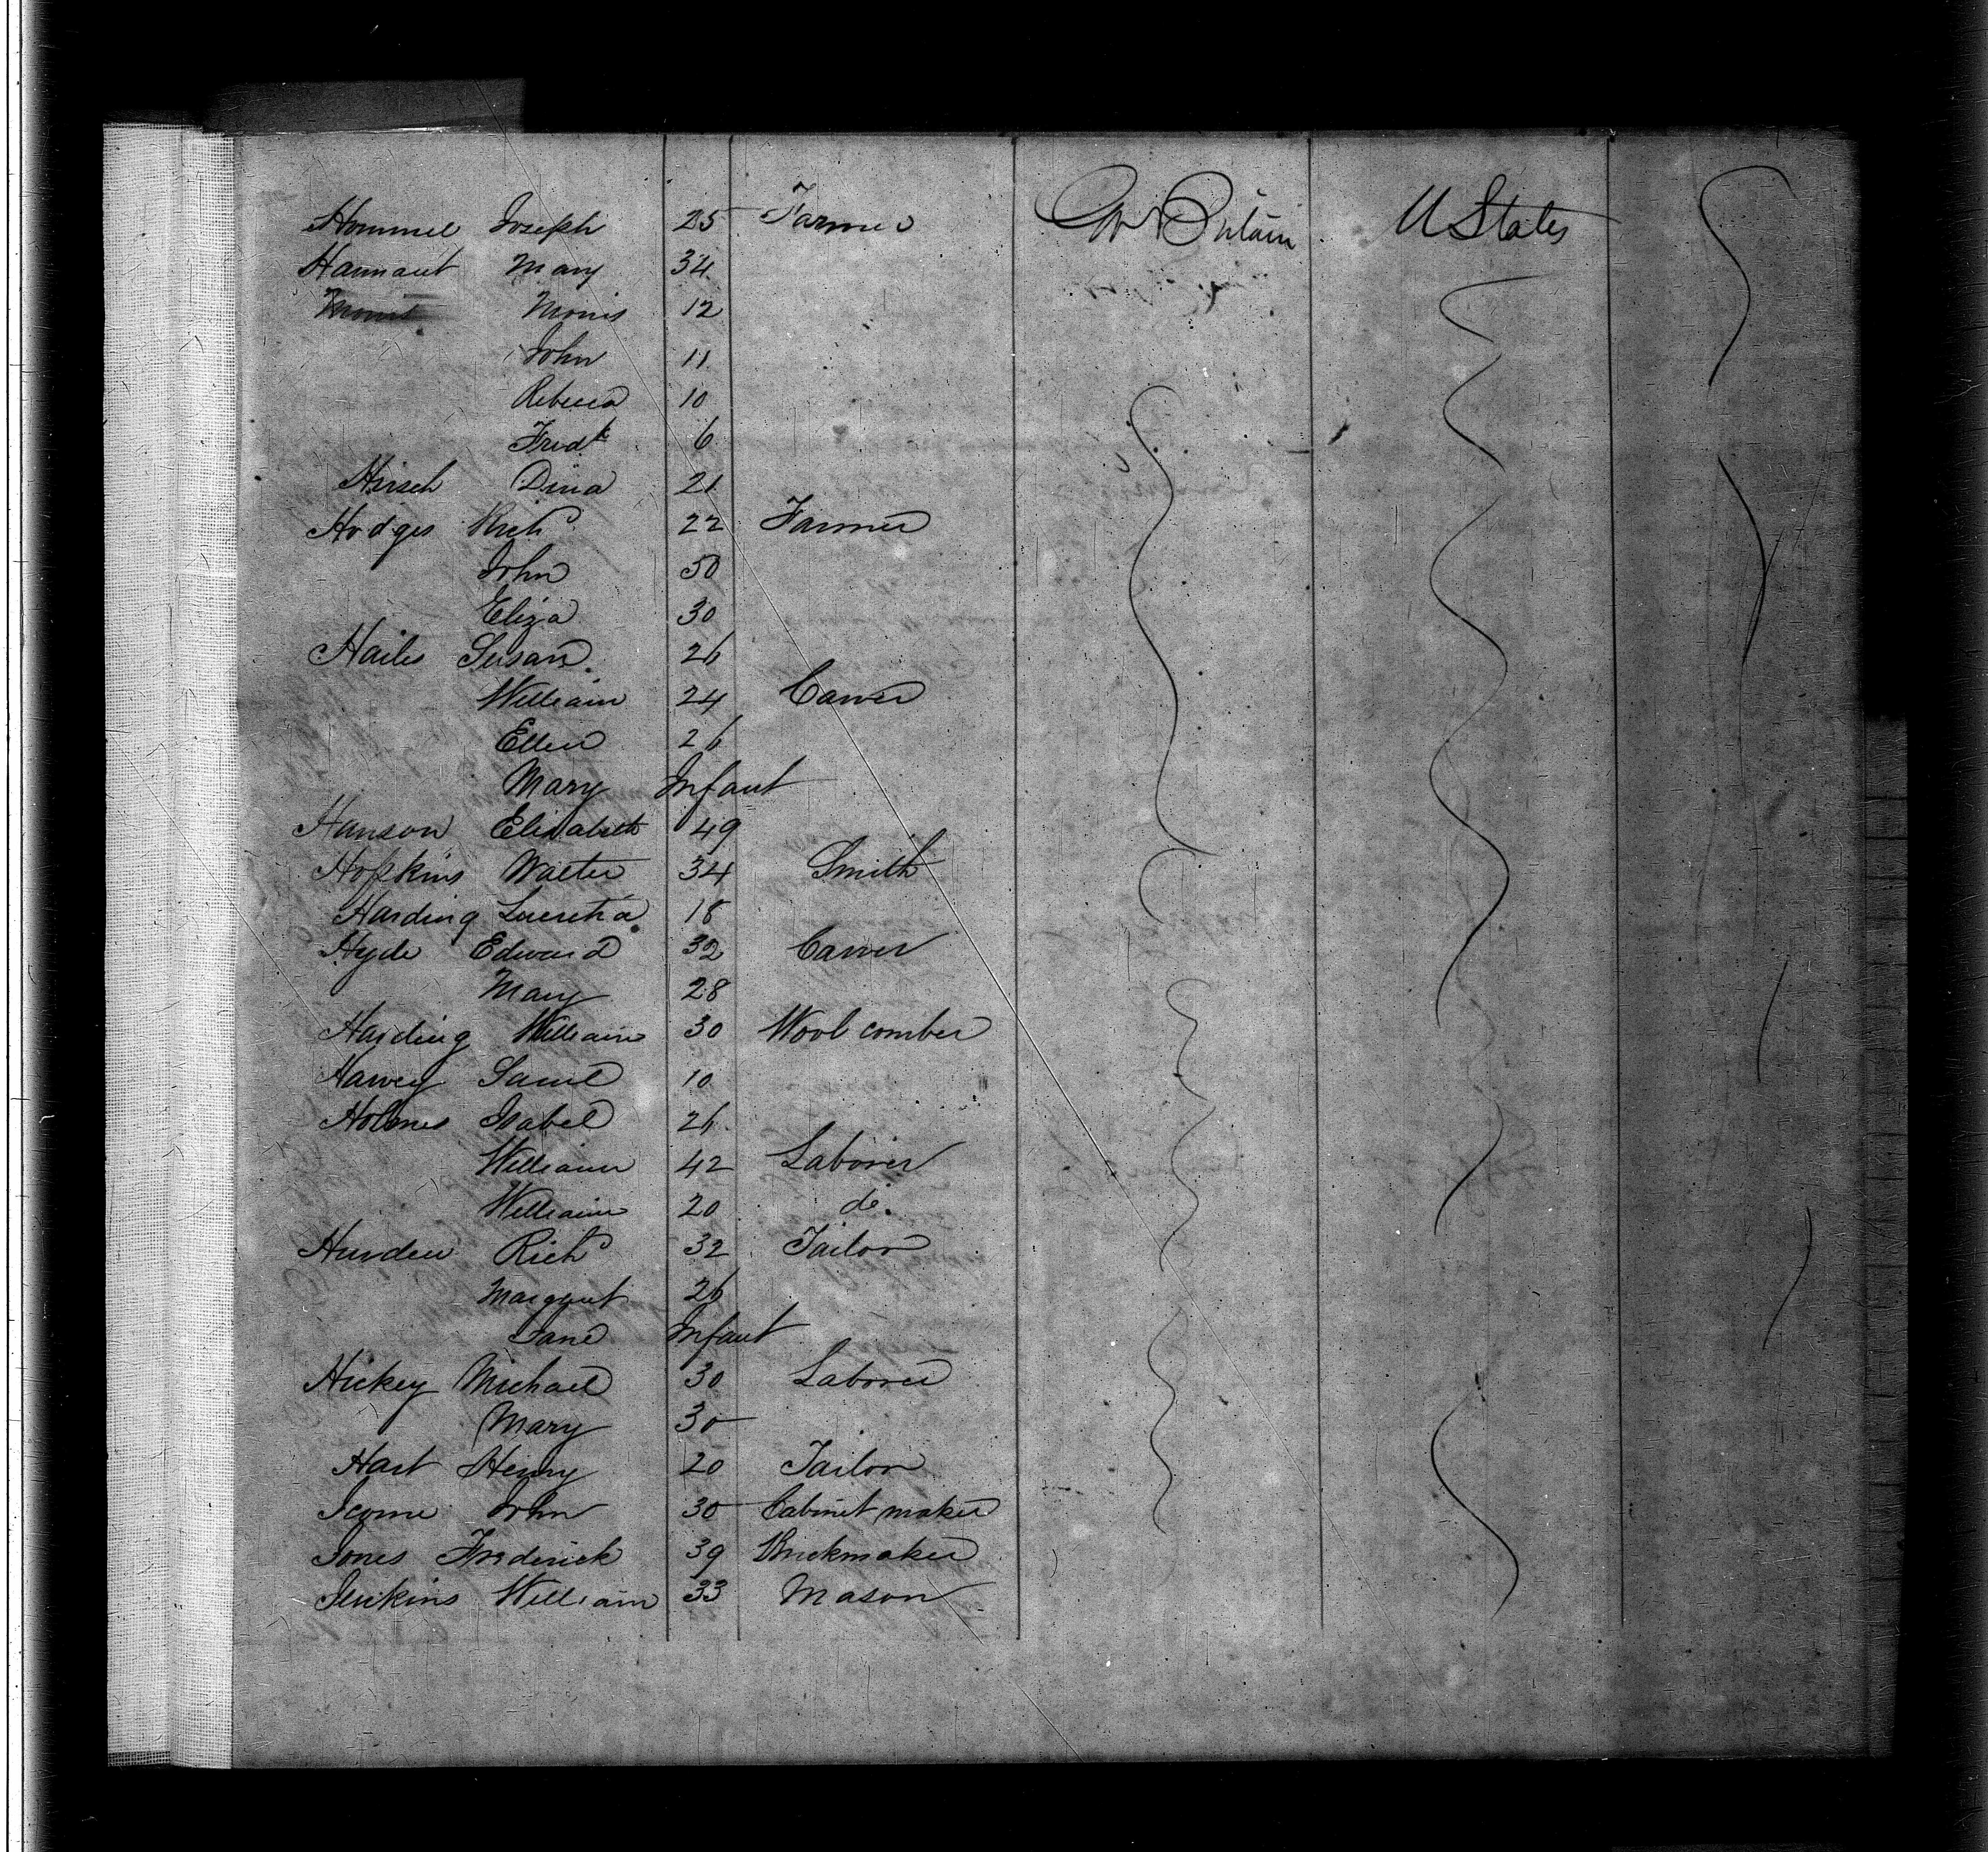 Hommel Joseph 25 Farmer Gt Britain U States
Hannant Mary 34
Morris 12
John 11
Rebecca 10
Fredk 6
Hirsch Dina 21
Hodges Richd 22 Farmer
John 50
Eliza 30
Hailes Susan 26
William 24 Carver
Ellen 26
Mary Infant
Hanson Elizabeth 49
Hopkins Walter 34 Smith
Harding Lucretia 18
Hyde Edward 32 Carver
Mary 28
Harding William 30 Wool comber
Harvey Saml 10
Holmes Isabel 26
William 42 Laborer
William 20 do.
Richd 32 Tailor
Margaret 26
Jane Infant
Hickey Michael 30 Laborer
Mary 30
Hart Henry 20 Tailor
John 30 Cabinet maker
Jones Frederick 39 Brickmaker
Jenkins William 33 Mason